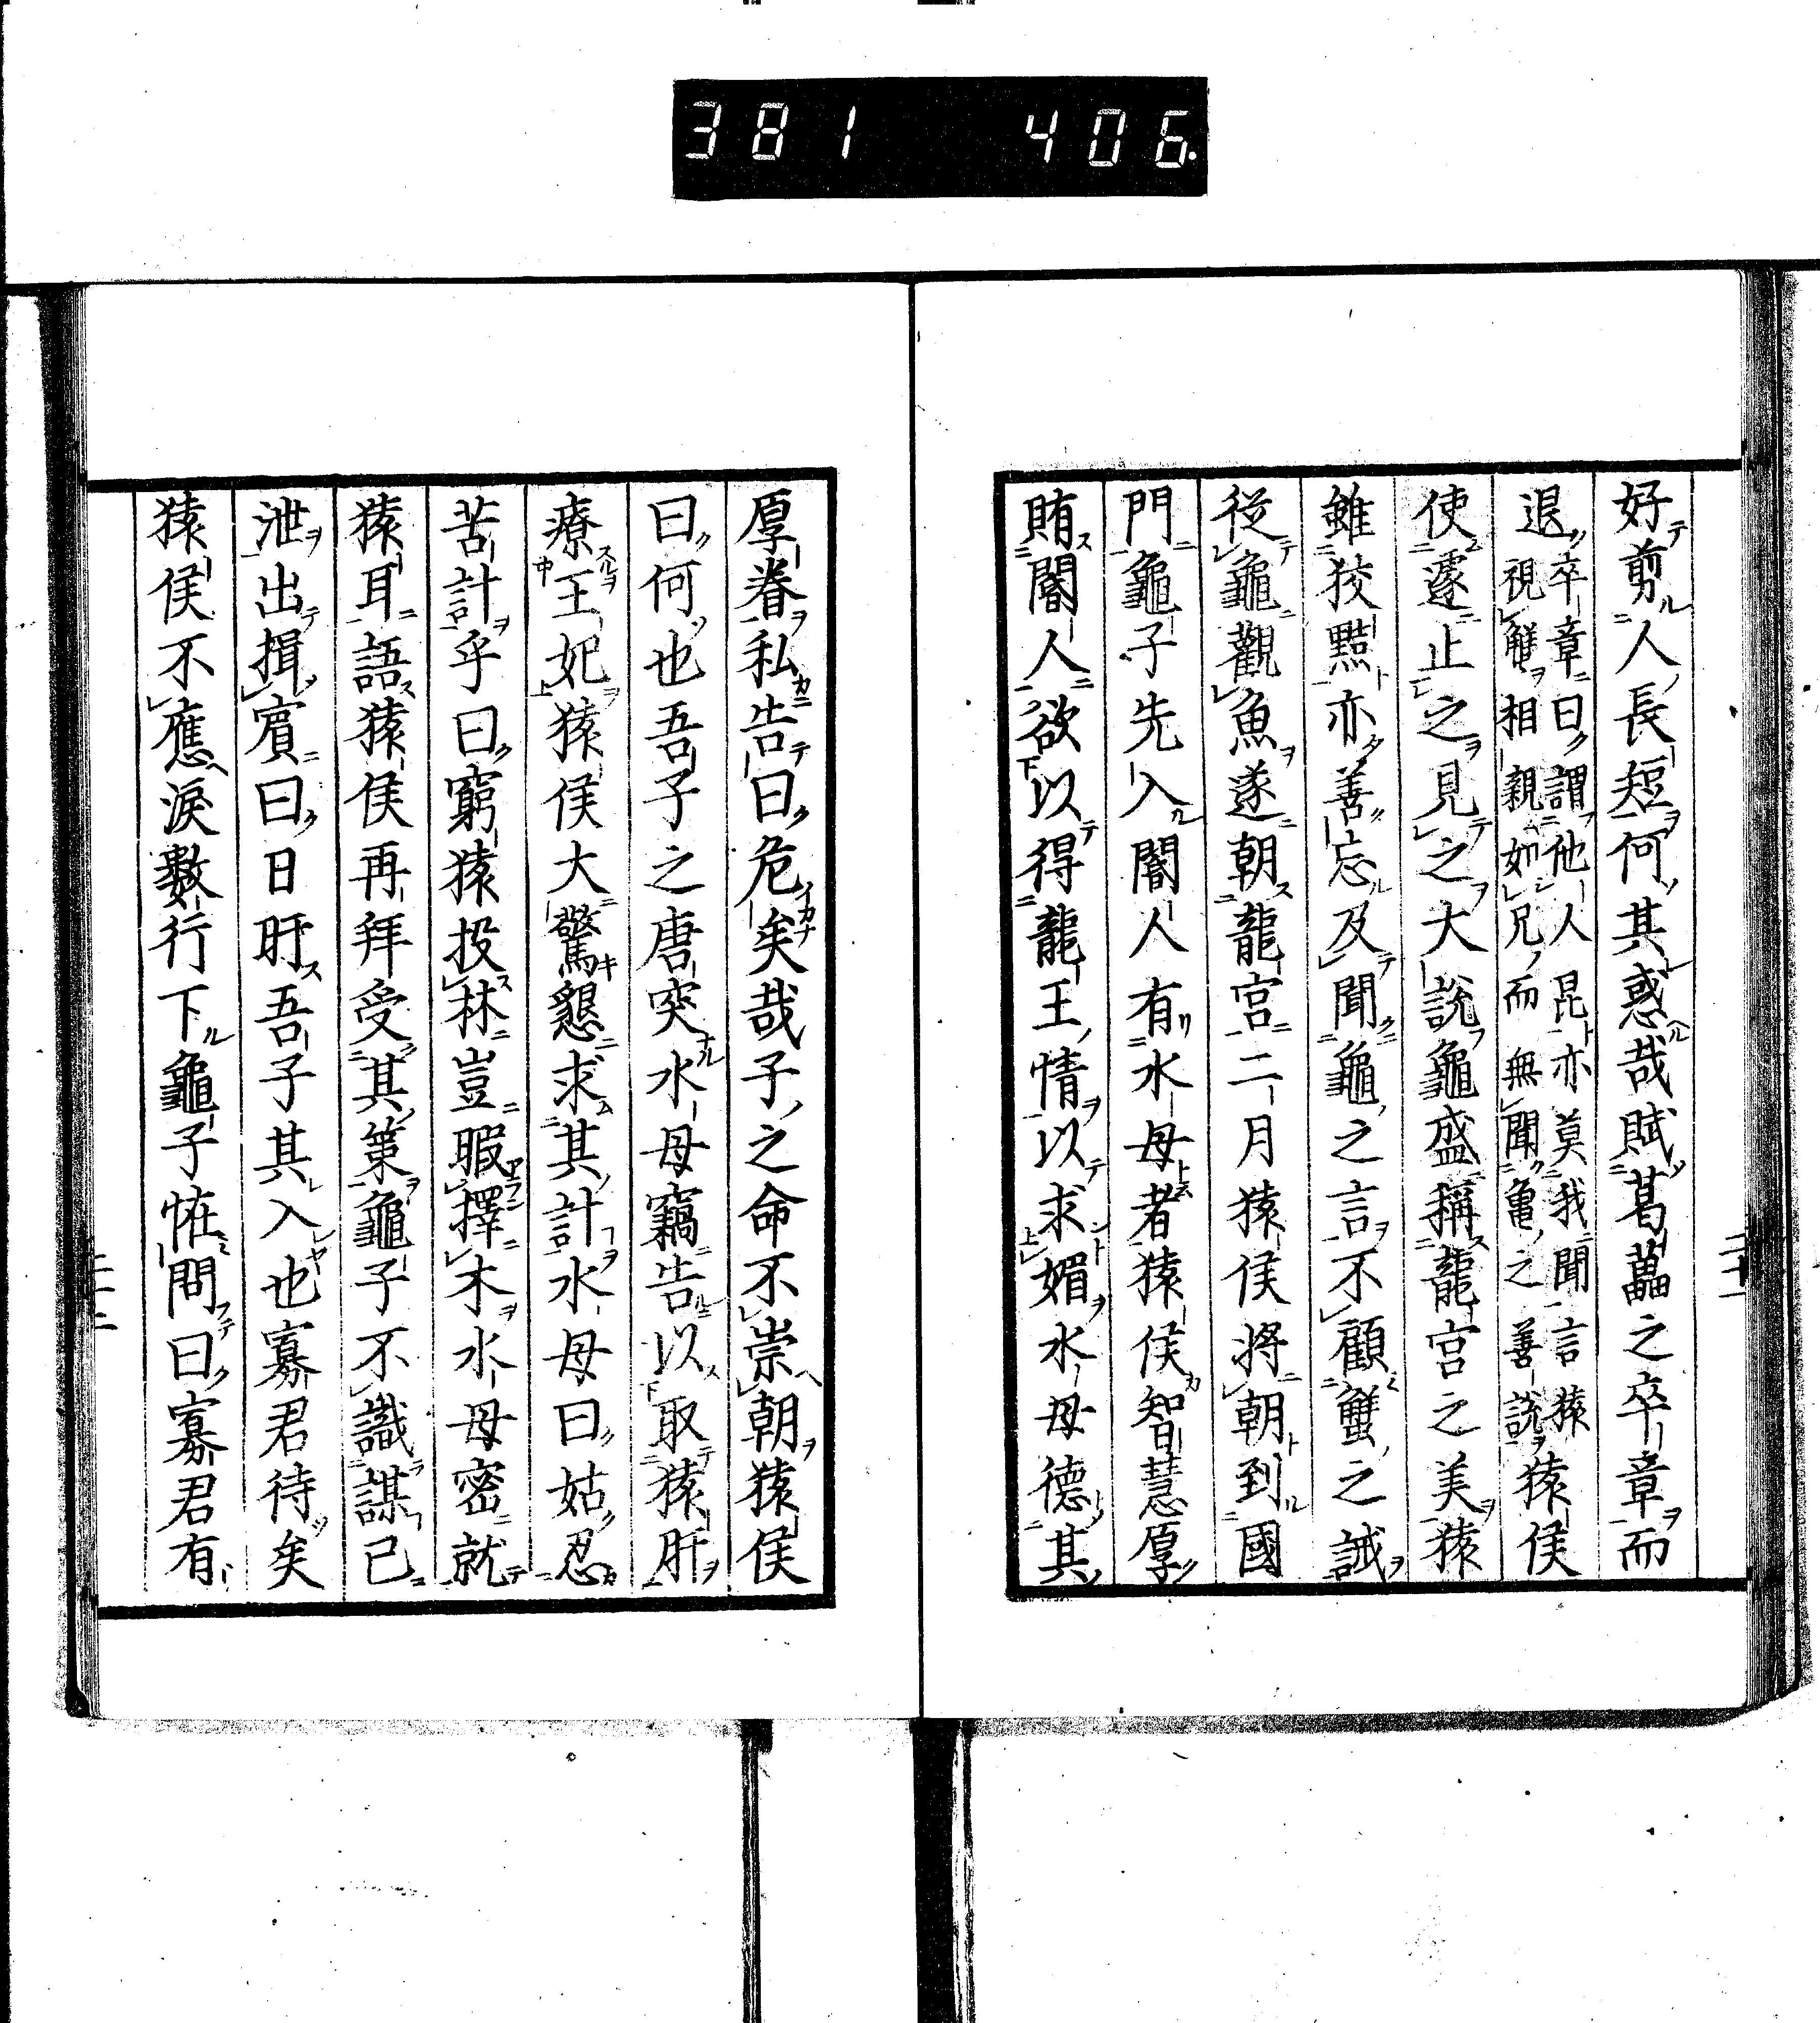 381 406.
好剪人長短何其惑哉賦葛藟之卒章而
退卒章曰謂他人昆亦莫我聞言猿
視蟹相親如兄而無聞亀之善説猿侯
使遽止之見之大説龜盛稱龍宮之美猿
雖狡黠亦善忘及聞龜之言不顧蟹之誡
從龜觀魚遂朝龍宮二月猿侯將朝到國
門龜子先入閽人有水母者猿侯智慧厚
賄閽人欲以得龍王情以求媚水母德其
厚眷私告曰危矣哉子之命不崇朝猿侯
曰何也吾子之唐突水母竊告以取猿肝
療王妃猿侯大驚懇求其計水母曰姑忍
苦計乎曰窮猿投林豈暇擇木水母密就
猿耳語猿侯再拜受其策龜子不識謀已
泄出揖賓曰日旰吾子其入也寡君待矣
猿侯不應淚數行下龜子恠問曰寡君有